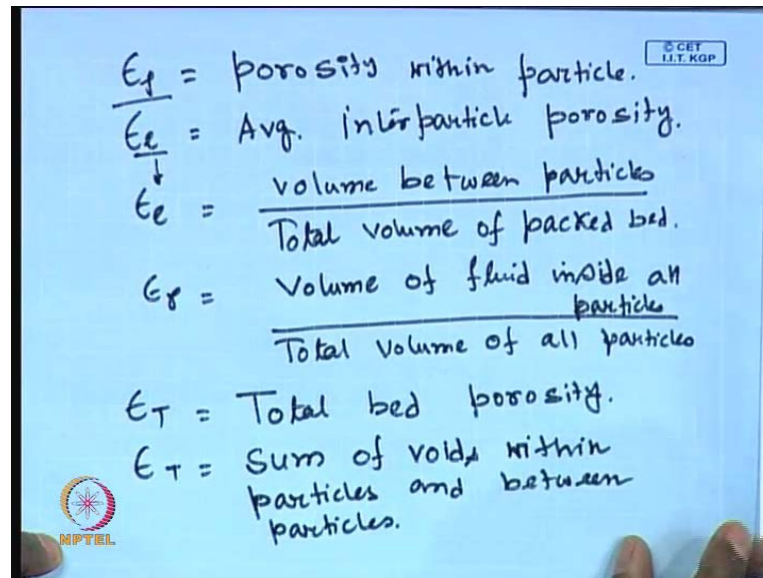 © CET
I.I.T. KGP
ϵp = porosity within particle.
ϵe = Avg. interparticle porosity.
↓
ϵe = volume between particles
Total volume of packed bed.
ϵp = Volume of fluid inside all
particle
Total volume of all particles
ϵT = Total bed porosity.
ϵT = Sum of voids within
particles and between
particles.
NPTEL